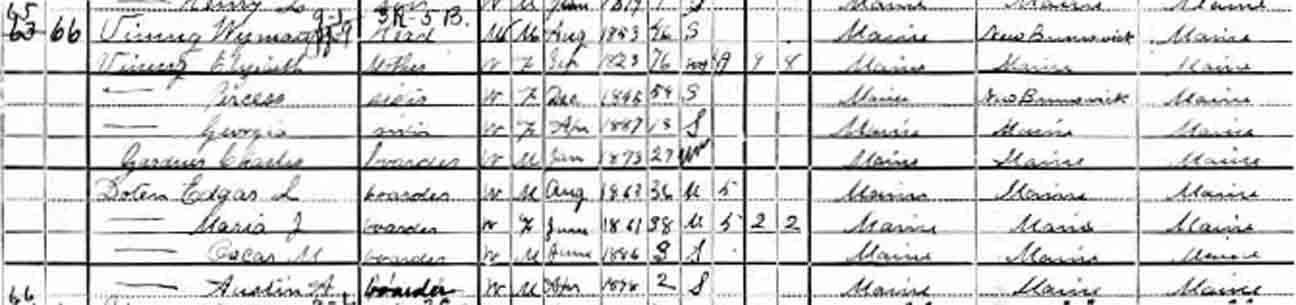 65
63 66 Vining Wyman Head W M Aug 1853 46 S Maine New Brunswick Maine
Vining Mother W F 1823 76 9 8 Maine Maine Maine
— sister W F Dec 1845 54 S Maine New Brunswick Maine
— Georgia W F Apr 1887 13 S Maine Maine Maine
Gardner Charles boarder W M Jan 1873 27 Maine Maine Maine
Doten Edgar L boarder W M Aug 1863 36 M 5 Maine Maine Maine
— Maria J boarder W F June 1861 38 M 5 2 2 Maine Maine Maine
— Oscar M boarder W M June 1896 3 S Maine Maine Maine
66 — Austin boarder W M Apr 1898 2 S Maine Maine Maine